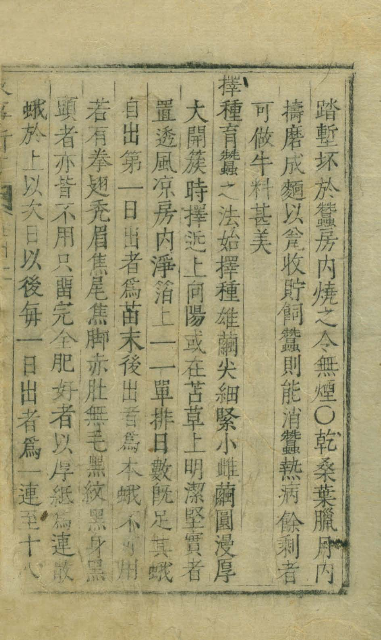 踏墼坯於蠶房内燒之令無煙○乾桑葉臘月内
擣磨成麵以瓮收貯飼蠶則能消蠶熱病餘剩者
可做牛料甚美
擇種育蠶之法始擇種雄繭尖細緊小雌繭圓漫厚
大開簇時擇近上向陽或在苫草上明潔堅實者
置透風凉房内淨箔上一一單排日數既足其蛾
自出第一日出者爲苗末後出者爲末蛾不用
若有拳翅禿眉焦尾焦脚赤肚無毛黑紋黑身黑
頭者亦皆不用只留完全肥好者以厚紙爲連散
蛾於上以次日以後每一日出者爲一連至十八